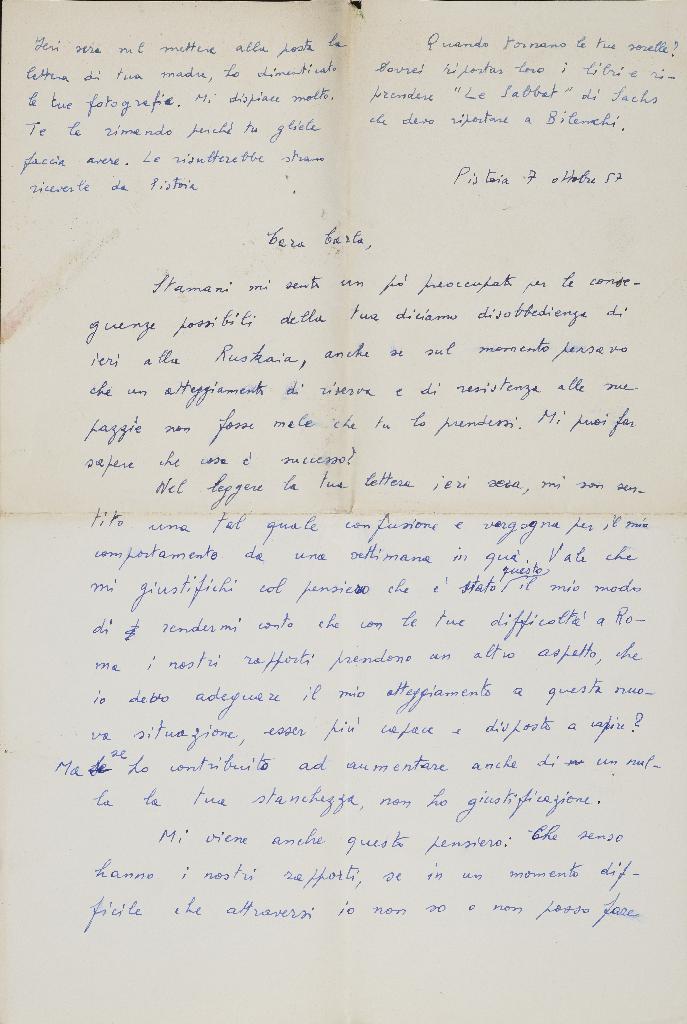 Ieri sera nel mettere alla posta la
lettera di tua madre, ho dimenticato
le tue fotografie. Mi dispiace molto.
Te le rimando perché tu gliele
faccia avere. Le risulterebbe strano
riceverle da Pistoia
Quando tornano le tue sorelle?
Dovrei riportar loro i libri e ri-
prendere "Le Sabbat" di Sachs
che devo riportare a Bilenchi.
Pistoia 7 ottobre 57
Cara Carla,
Stamani mi sento un pó preoccupato per le conse-
guenze possibili della tua diciamo disobbedienza di
ieri alla Ruskaia, anche se sul momento pensavo
che un atteggiamento di riserva e di resistenza alle sue
pazzie non fosse male che tu lo prendessi. Mi puoi far
sapere che cosa è successo?
Nel leggere la tua lettera ieri sera, mi son sen-
tito una tal quale confusione e vergogna per il mio
comportamento da una settimana in quà. Vale che
mi giustifichi col pensiero che è stato questo il mio modo
di rendermi conto che con le tue difficoltà a Ro-
ma i nostri rapporti prendono un altro aspetto, che
io debbo adeguare il mio atteggiamento a questa nuo-
va situazione, esser più capace e disposto a capire?
Ma se ho contribuito ad aumentare anche di un nul-
la la tua stanchezza, non ho giustificazione.
Mi viene anche questo pensiero: Che senso
hanno i nostri rapporti, se in un momento dif-
ficile che attraversi io non so o non posso fare